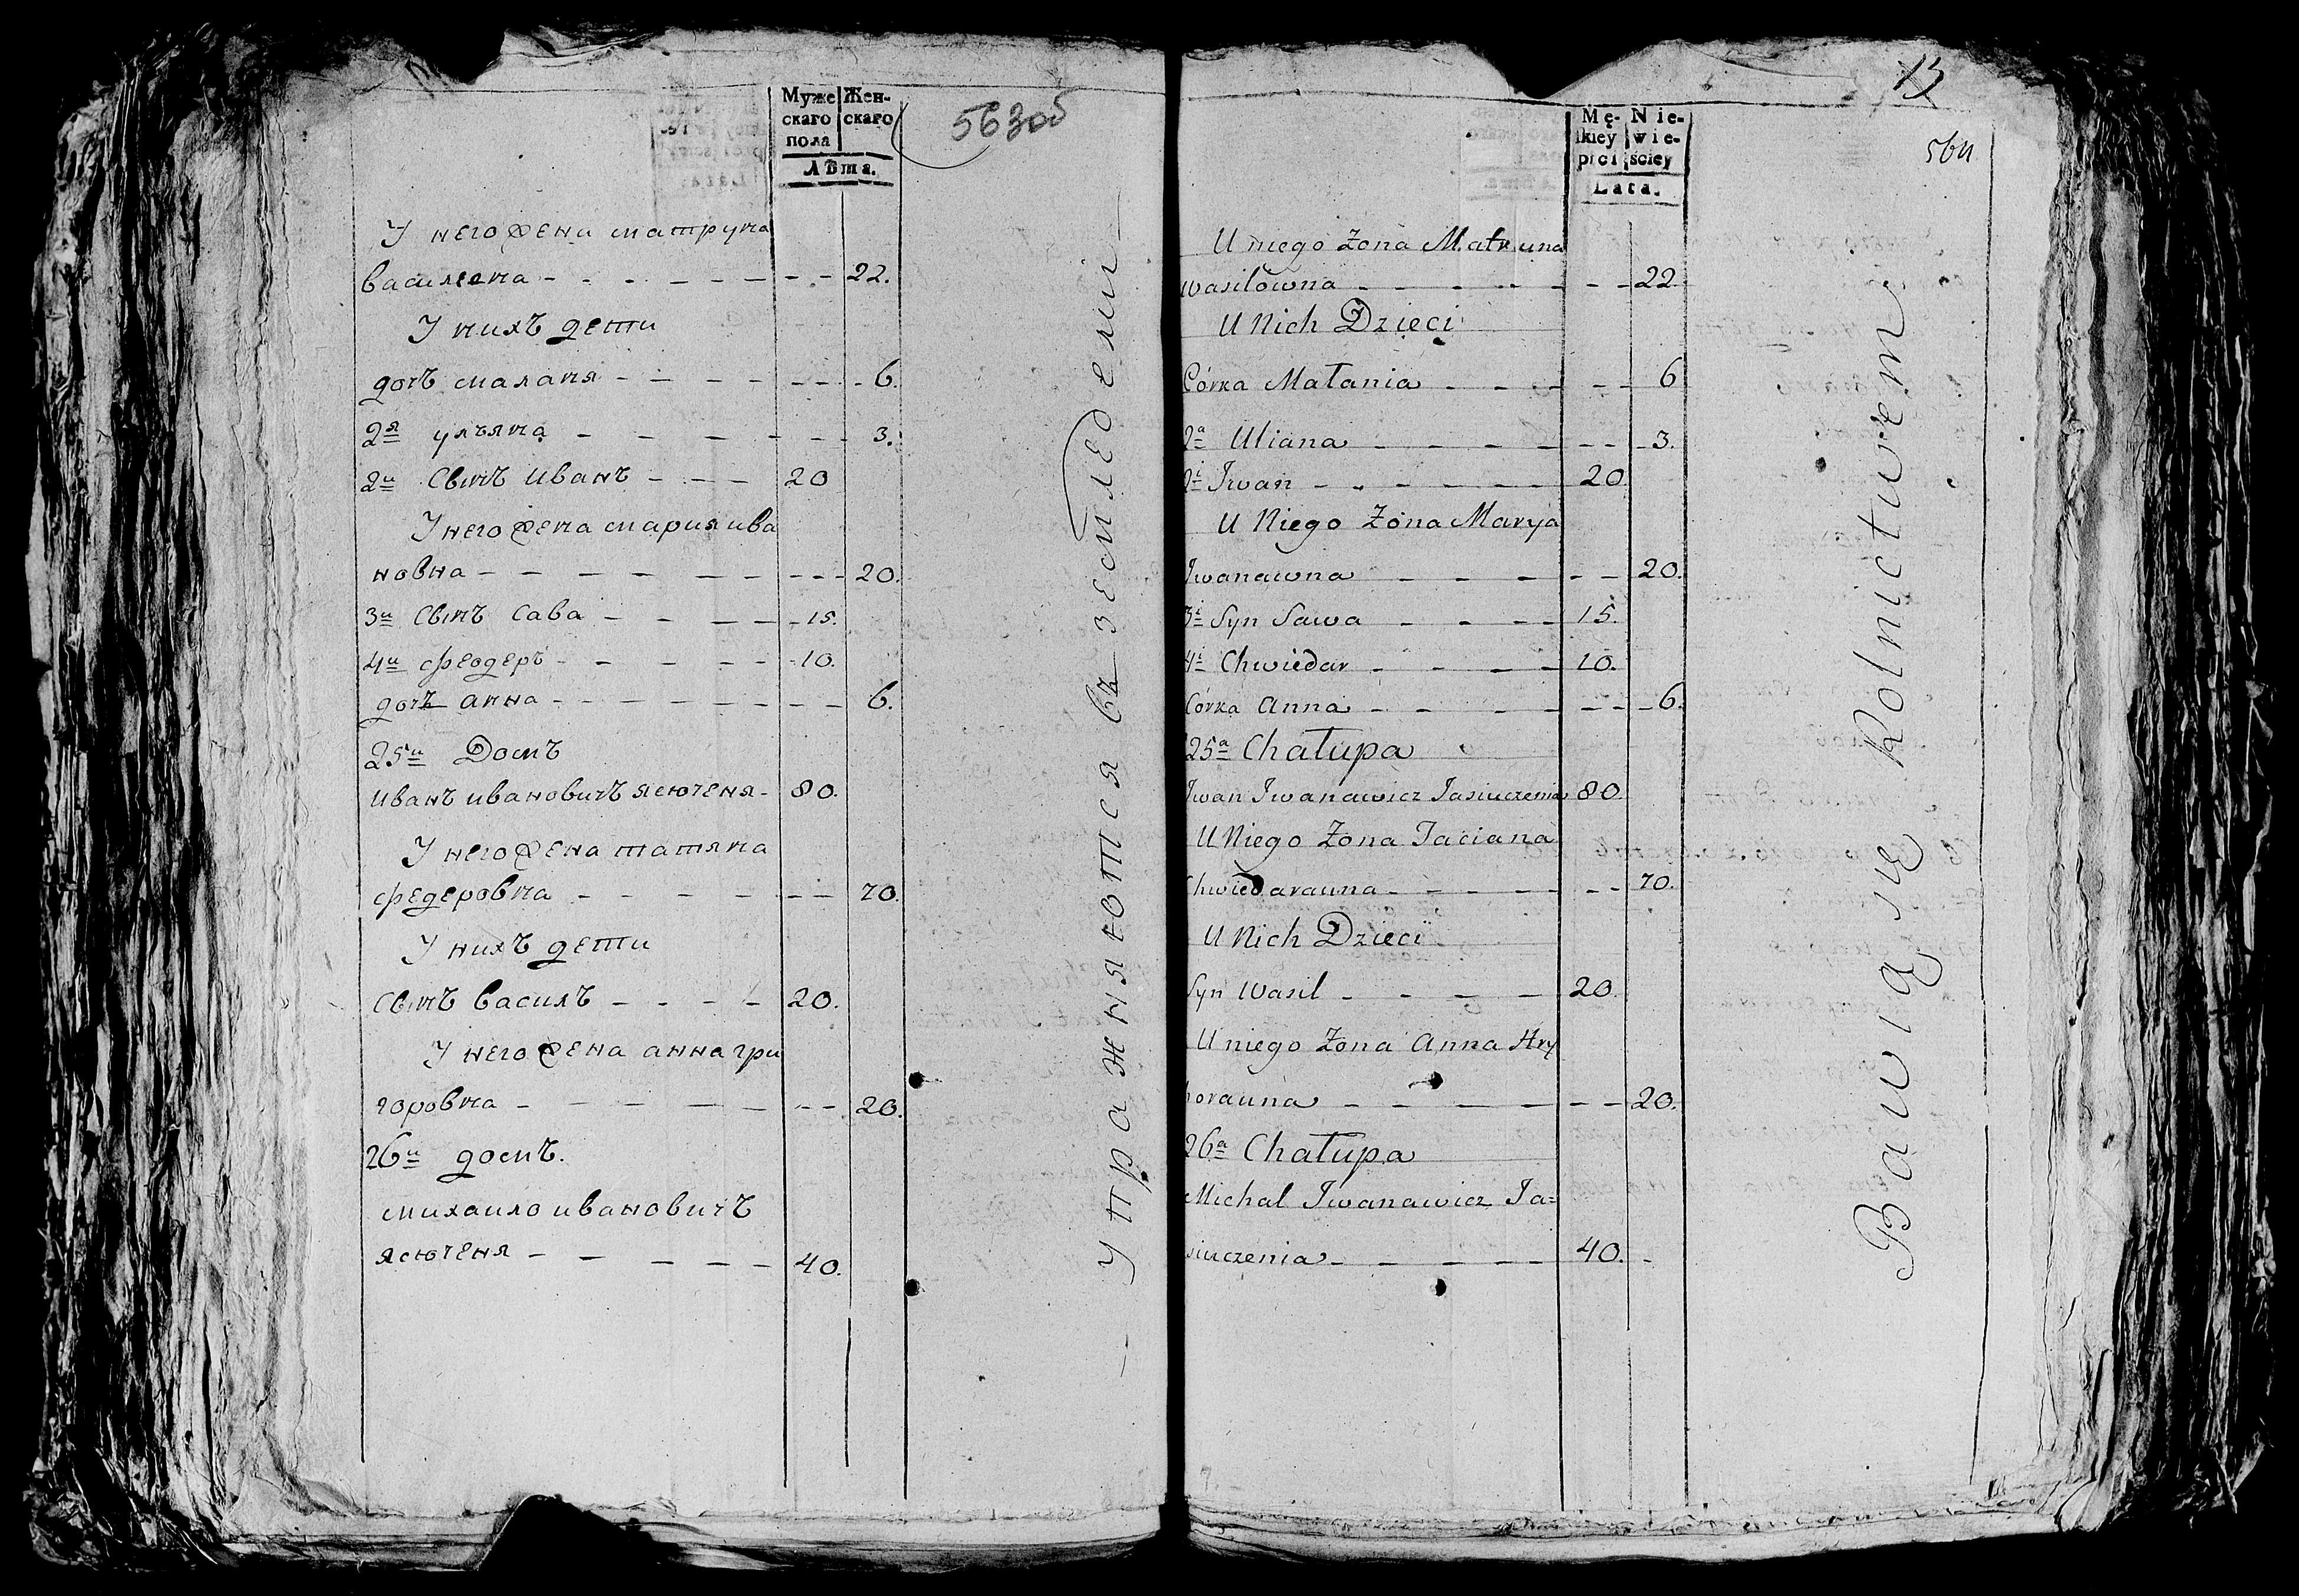 Муже
скаго
пола
Жен-
скаго
Лѣта.
563об
У него жена матруна
василевна - - - - - - - 22.
У нихъ дети
дочъ маланя - - - - - - - 6.
2я ульяна - - - - - - 3.
2й Сынъ Иванъ - - - 20
У него жена мария ива
новна - - - - - - - - 20.
3й Сынъ Сава - - - - - 15.
4й феодеръ - - - - - - 10.
дочъ анна - - - - - - - - 6.
25й Домъ
иванъ ивановичъ ясюченя - 80.
У него жена татяна
федеровна - - - - - - 70.
У нихъ дети
Сынъ василъ - - - - 20.
У него жена анна гри
горовна - - - - - - - 20.
26й домъ.
михаило ивановичъ
ясюченя - - - - - 40.
упражняются въ земледелии
13
564
Mę-
ſkiey
płci
Nie-
wie-
ściey
Lata.
U niego Żona Matruna
wasilowna - - - - - - - 22
U Nich Dzieci
Córka Małania - - - - - 6
2a Uliana - - - - - - - 3.
2i Iwan - - - - - - 20
U Niego Żona Marya
Iwanawna - - - - - 20.
3i Syn Sawa - - - - 15.
4i Chwiedar - - - - 10.
Córka Anna - - - - - - - 6.
25a Chałupa
Iwan Iwanawicz Jasiuczenia 80.
U Niego Żona Taciana
Chwiedarauna - - - - - - 70.
U Nich Dzieci
Syn Wasil - - - - 20.
U niego Żona Anna Hry
horauna - - - - - - 20.
26a Chałupa
Michał Iwanawicz Ja=
siuczenia - - - - - 40. -
Bawią się Rolnictwem